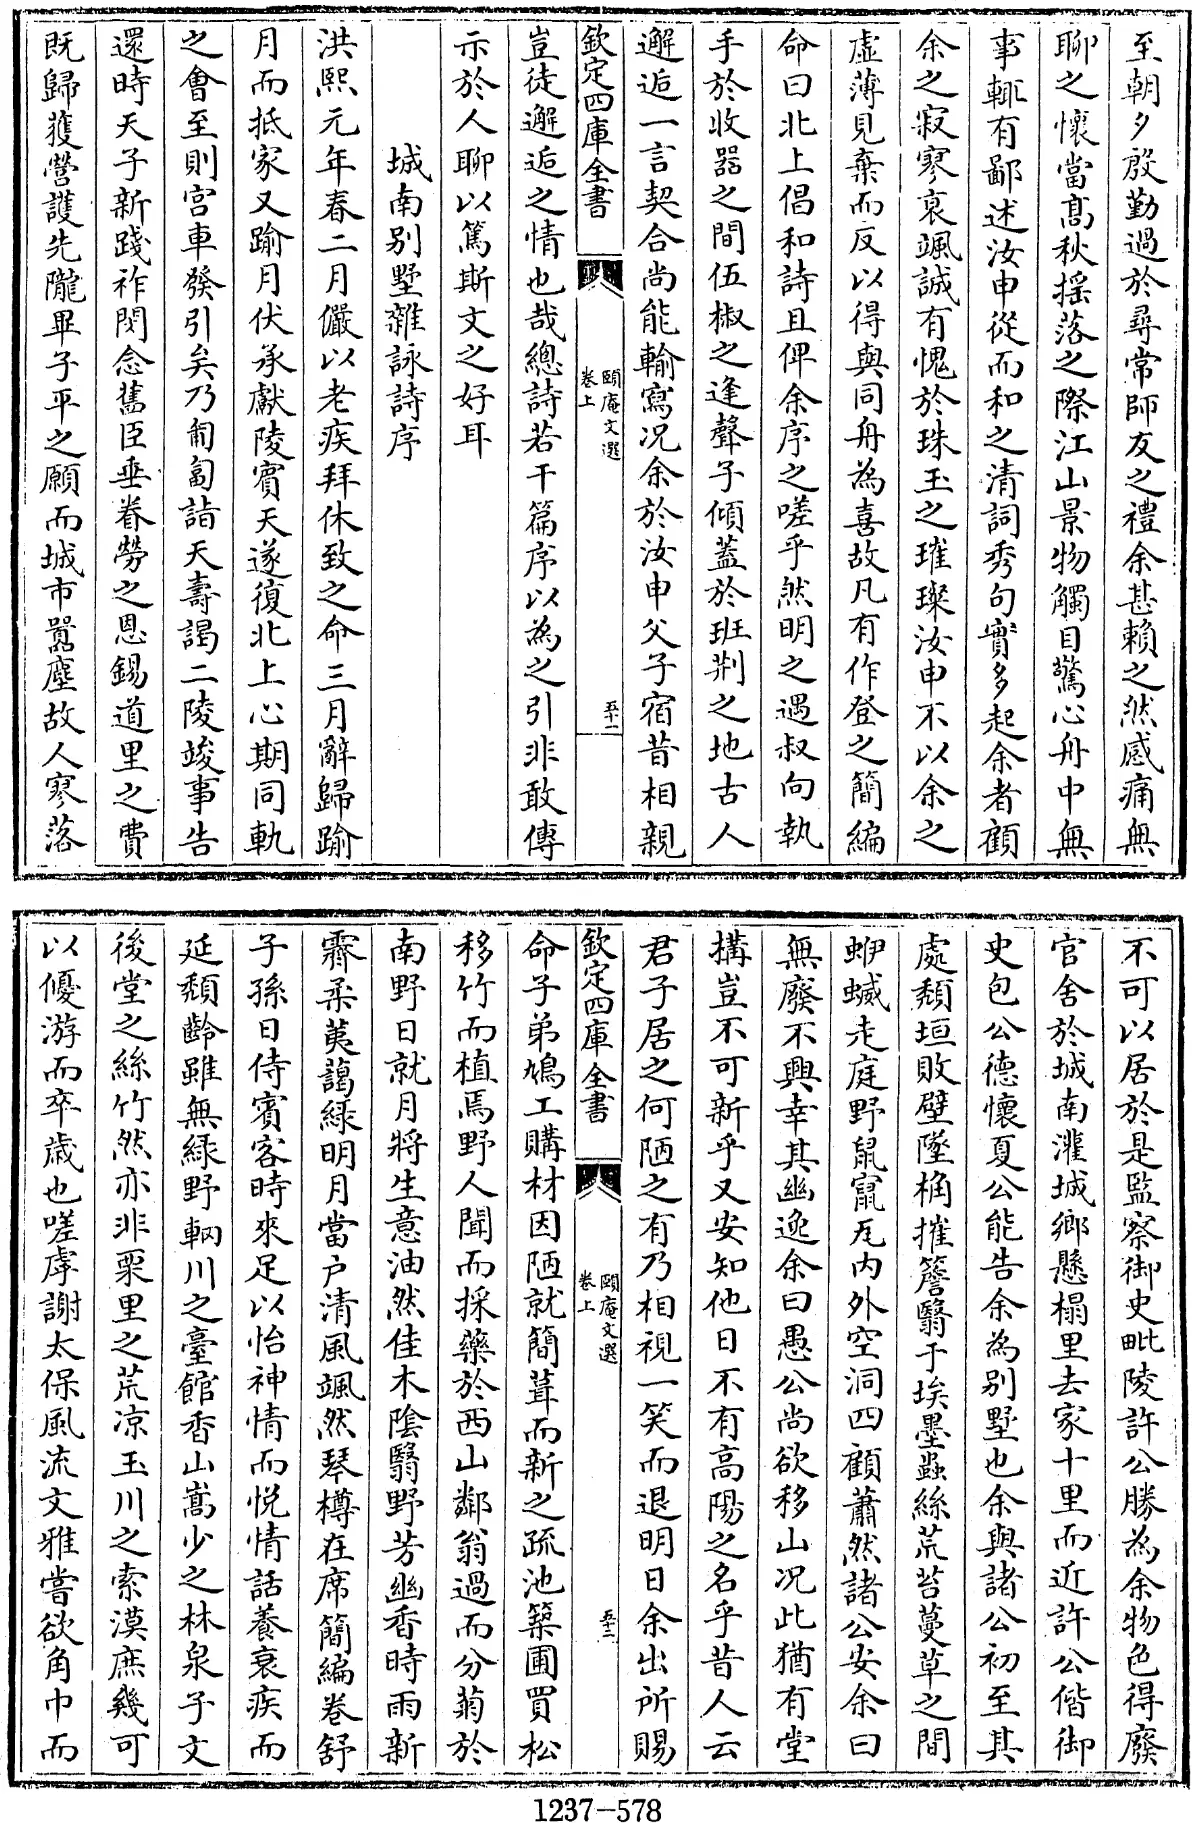 至朝夕殷勤過於尋常師友之禮余甚賴之然感痛無
聊之懷當髙秋揺落之際江山景物觸目驚心舟中無
事輒有鄙述汝申從而和之清詞秀句實多起余者顧
余之寂寥衰颯誠有愧於珠玉之璀璨汝申不以余之
虚薄見棄而反以得與同舟為喜故凡有作登之簡編
命曰北上倡和詩且俾余序之嗟乎然明之遇叔向執
手於收器之間伍椒之逢聲子傾蓋於班荆之地古人
邂逅一言契合尚能輸寫况余於汝申父子宿昔相親
欽定四庫全書
頤庵文選
卷上
五十一
豈徒邂逅之情也哉總詩若干篇序以為之引非敢傳
示於人聊以篤斯文之好耳
城南别墅雜詠詩序
洪熙元年春二月儼以老疾拜休致之命三月辭歸踰
月而抵家又踰月伏承獻陵賓天遂復北上心期同軌
之會至則宫車發引矣乃匍匐詣天壽謁二陵竣事告
還時天子新踐祚閔念舊臣垂眷勞之恩錫道里之費
既歸獲營護先隴畢子平之願而城市囂塵故人寥落
不可以居於是監察御史毗陵許公勝為余物色得廢
官舍於城南灌城鄉懸榻里去家十里而近許公偕御
史包公德懷夏公能告余為别墅也余與諸公初至其
處頽垣敗壁墜桷摧簷翳于埃墨蟲絲荒苔蔓草之間
蛜蝛走庭野鼠竄瓦内外空洞四顧蕭然諸公安余曰
無廢不興幸其幽逸余曰愚公尚欲移山况此猶有堂
構豈不可新乎又安知他日不有高陽之名乎昔人云
君子居之何陋之有乃相視一笑而退明日余出所賜
欽定四庫全書
頤庵文選
卷上
五十二
命子弟鳩工購材因陋就簡葺而新之疏池築圃買松
移竹而植焉野人聞而採藥於西山鄰翁過而分菊於
南野日就月將生意油然佳木陰翳野芳幽香時雨新
霽柔荑藹緑明月當户清風颯然琴樽在席簡編卷舒
子孫日侍賓客時來足以怡神情而悦情話養衰疾而
延頽齡雖無緑野輞川之臺館香山嵩少之林泉子文
後堂之絲竹然亦非栗里之荒凉玉川之索漠庶幾可
以優游而卒歳也嗟虖謝太保風流文雅嘗欲角巾而
1237-578